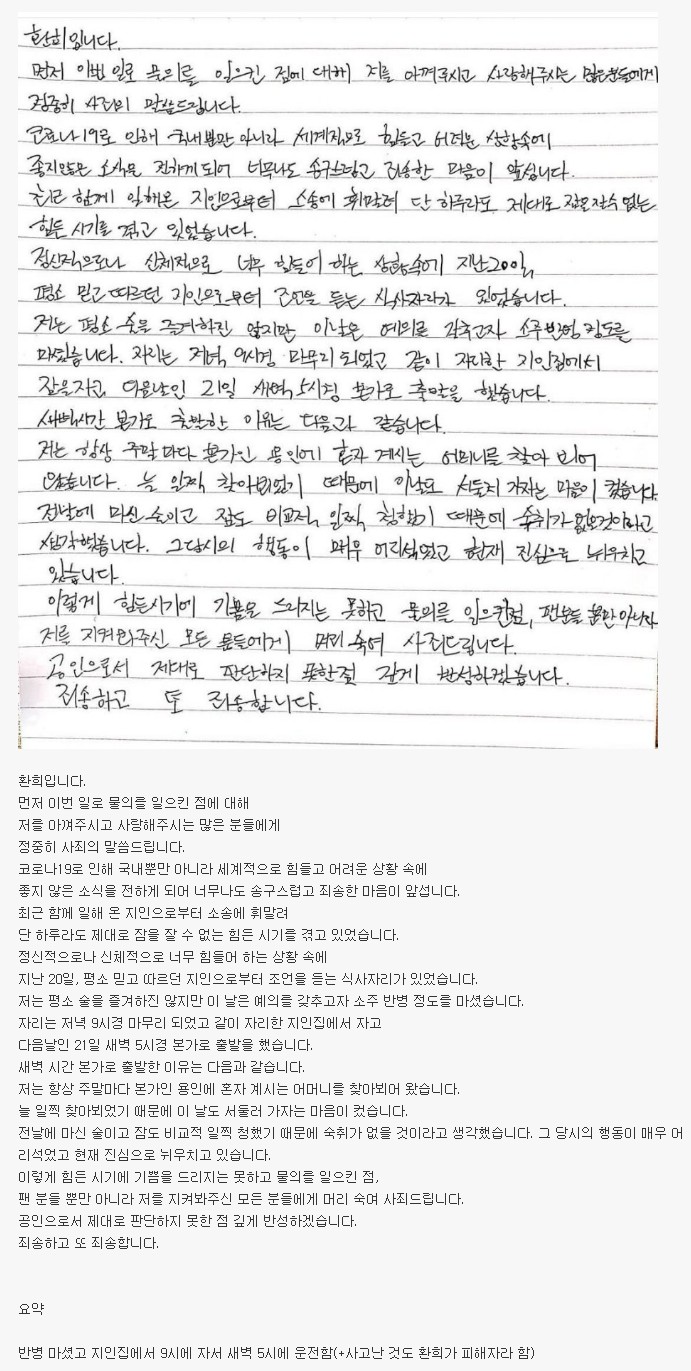 환희입니다.
먼저 이번 일로 물의를 일으킨 점에 대해 저를 아껴주시고 사랑해주시는 많은분들에게
정중히 사죄의 말씀드립니다.
코로나19로 인해 국내뿐만 아니라 세계적으로 힘들고 어려운 상황속에
좋지않은 소식을 전하게 되어 너무나도 송구스럽고 죄송한 마음이 앞섭니다.
최근 함께 일해온 지인으로부터 소송에 휘말려 단 하루라도 제대로 잠을잘수 없는
힘든 시기를 겪고 있었습니다.
정신적으로나 신체적으로 너무 힘들어 하는 상황속에 지난20일,
평소 믿고 따르던 지인으로부터 조언을 듣는 식사자리가 있었습니다.
저는 평소 술을 즐겨하진 않지만 이날은 예의를 갖추고자 소주반병 정도를
마셨습니다. 자리는 저녁 9시경 마무리 되었고 같이 자리한 지인집에서
잠을자고, 다음날인 21일 새벽 5시경 본가로 출발을 했습니다.
새벽시간 본가로 출발한 이유는 다음과 같습니다.
저는 항상 주말마다 본가인 용인에 혼자 계시는 어머니를 찾아 뵈어
왔습니다. 늘 일찍 찾아뵈었기 때문에 이날도 서둘러 가자는 마음이 컸습니다.
전날에 마신 술이고 잠도 비교적 일찍 청했기 때문에 숙취가 없을것이라고
생각했습니다. 그당시의 행동이 매우 어리석었고 현재 진심으로 뉘우치고
있습니다.
이렇게 힘든시기에 기쁨을 드리지는 못하고 물의를 일으킨점, 팬분들 뿐만 아니라
저를 지켜봐주신 모든 분들에게 머리 숙여 사죄드립니다.
공인으로서 제대로 판단하지 못한점 깊게 반성하겠습니다.
죄송하고 또 죄송합니다.
환희입니다.
먼저 이번 일로 물의를 일으킨 점에 대해
저를 아껴주시고 사랑해주시는 많은 분들에게
정중히 사죄의 말씀드립니다.
코로나19로 인해 국내뿐만 아니라 세계적으로 힘들고 어려운 상황 속에
좋지 않은 소식을 전하게 되어 너무나도 송구스럽고 죄송한 마음이 앞섭니다.
최근 함께 일해 온 지인으로부터 소송에 휘말려
단 하루라도 제대로 잠을 잘 수 없는 힘든 시기를 겪고 있었습니다.
정신적으로나 신체적으로 너무 힘들어 하는 상황 속에
지난 20일, 평소 믿고 따르던 지인으로부터 조언을 듣는 식사자리가 있었습니다.
저는 평소 술을 즐겨하진 않지만 이 날은 예의를 갖추고자 소주 반병 정도를 마셨습니다.
자리는 저녁 9시경 마무리 되었고 같이 자리한 지인집에서 자고
다음날인 21일 새벽 5시경 본가로 출발을 했습니다.
새벽 시간 본가로 출발한 이유는 다음과 같습니다.
저는 항상 주말마다 본가인 용인에 혼자 계시는 어머니를 찾아뵈어 왔습니다.
늘 일찍 찾아뵈었기 때문에 이 날도 서둘러 가자는 마음이 컸습니다.
전날에 마신 술이고 잠도 비교적 일찍 청했기 때문에 숙취가 없을 것이라고 생각했습니다. 그 당시의 행동이 매우 어
리석었고 현재 진심으로 뉘우치고 있습니다.
이렇게 힘든 시기에 기쁨을 드리지는 못하고 물의를 일으킨 점,
팬 분들 뿐만 아니라 저를 지켜봐주신 모든 분들에게 머리 숙여 사죄드립니다.
공인으로서 제대로 판단하지 못한 점 깊게 반성하겠습니다.
죄송하고 또 죄송합니다.
요약
반병 마셨고 지인집에서 9시에 자서 새벽 5시에 운전함(+사고난 것도 환희가 피해자라 함)